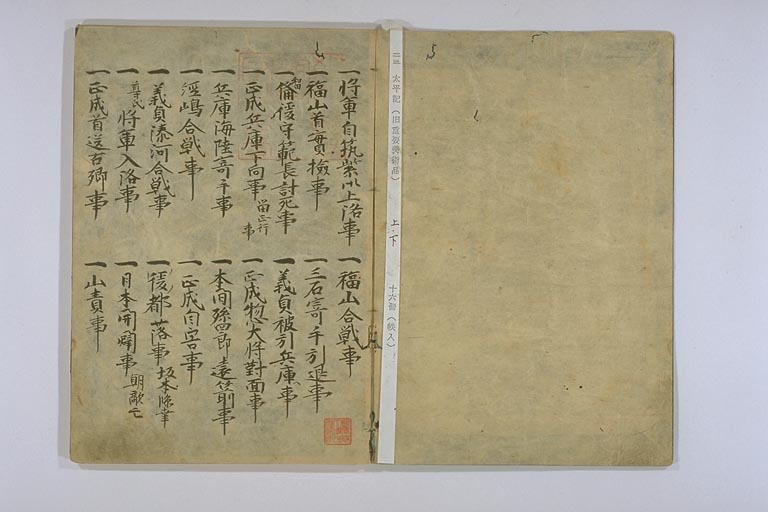 二三 太平記(旧重要美術品) 上・下 十六冊(帙入)
一将軍自筑紫御上洛事 一福山合戦事
一福山首實檢事 一三石寄手引退事
一備後守範長討死事 一義貞被引兵庫事
一正成兵庫下向事 留正行事 一正成惣大将對面事
一兵庫海陸寄手事 一本間孫四郎遠矢射事
一經嶋合戦事 一正成自害事
一義貞湊河合戦事 一後都落事 坂本臨幸
一尊氏将軍入洛事 一日本開闢事 朝敵亡
一正成首送古郷事 一山責事